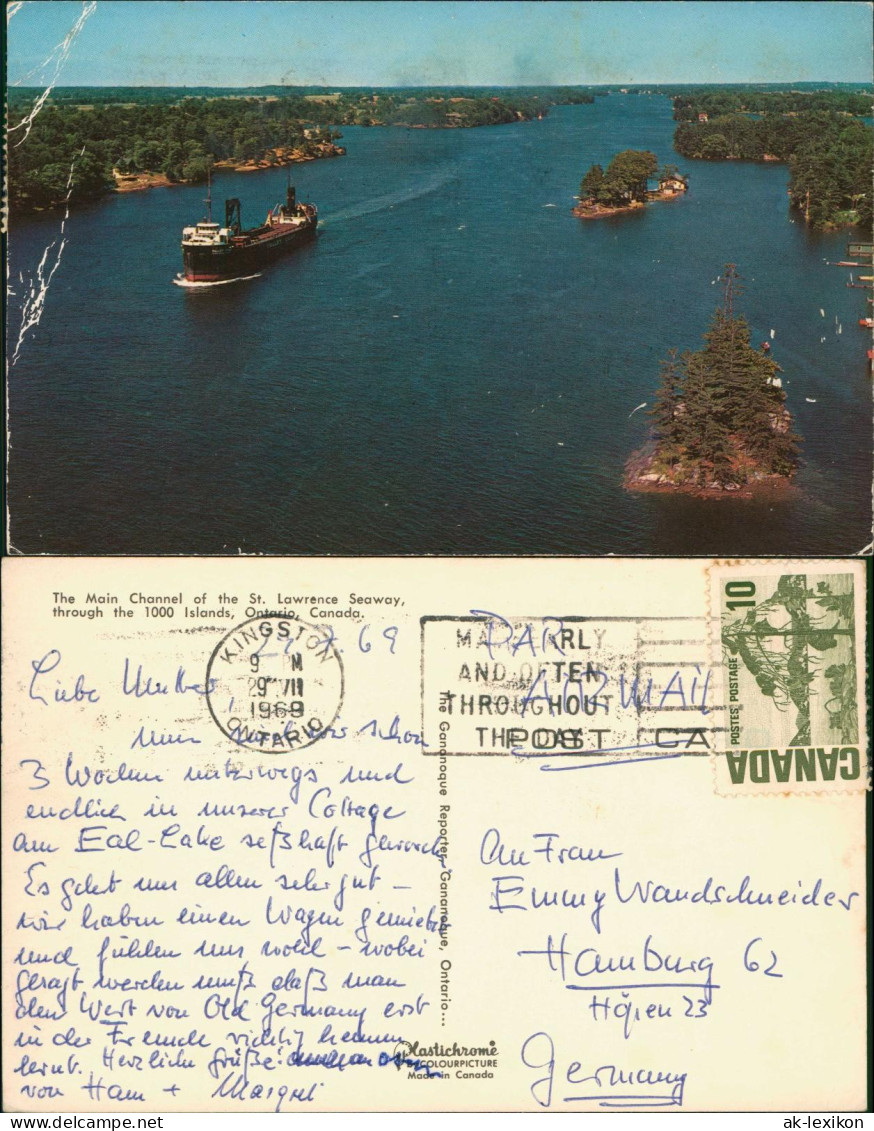 The Main Channel of the St. Lawrence Seaway,
through the 1000 Islands, Ontario, Canada.
KINGSTON
9 M
29 VII
1969
ONTARIO
MAIL EARLY
AND OFTEN
THROUGHOUT
THE DAY
POST CA
PAR
AIR MAIL
10
POSTES POSTAGE
CANADA
69
Liebe Mutter
nun wir schon
3 Wochen unterwegs und
endlich in unserer Cottage
am Eal-Lake seßhaft
Es geht uns allen sehr gut –
wir haben einen Wagen gemietet
und fühlen uns wohl – wobei
gesagt werden muß daß man
den Wert von Old Germany erst
in der Fremde richtig kennen
lernt. Herzliche Grüße
von Hans + Margret
The Gananoque Reporter, Gananoque, Ontario...
An Frau
Emmy Wandschneider
Hamburg 62
23
Germany
Plastichrome
COLOURPICTURE
Made in Canada
Website: http://www.ansichtskarten-lexikon.de
ak-lexikon